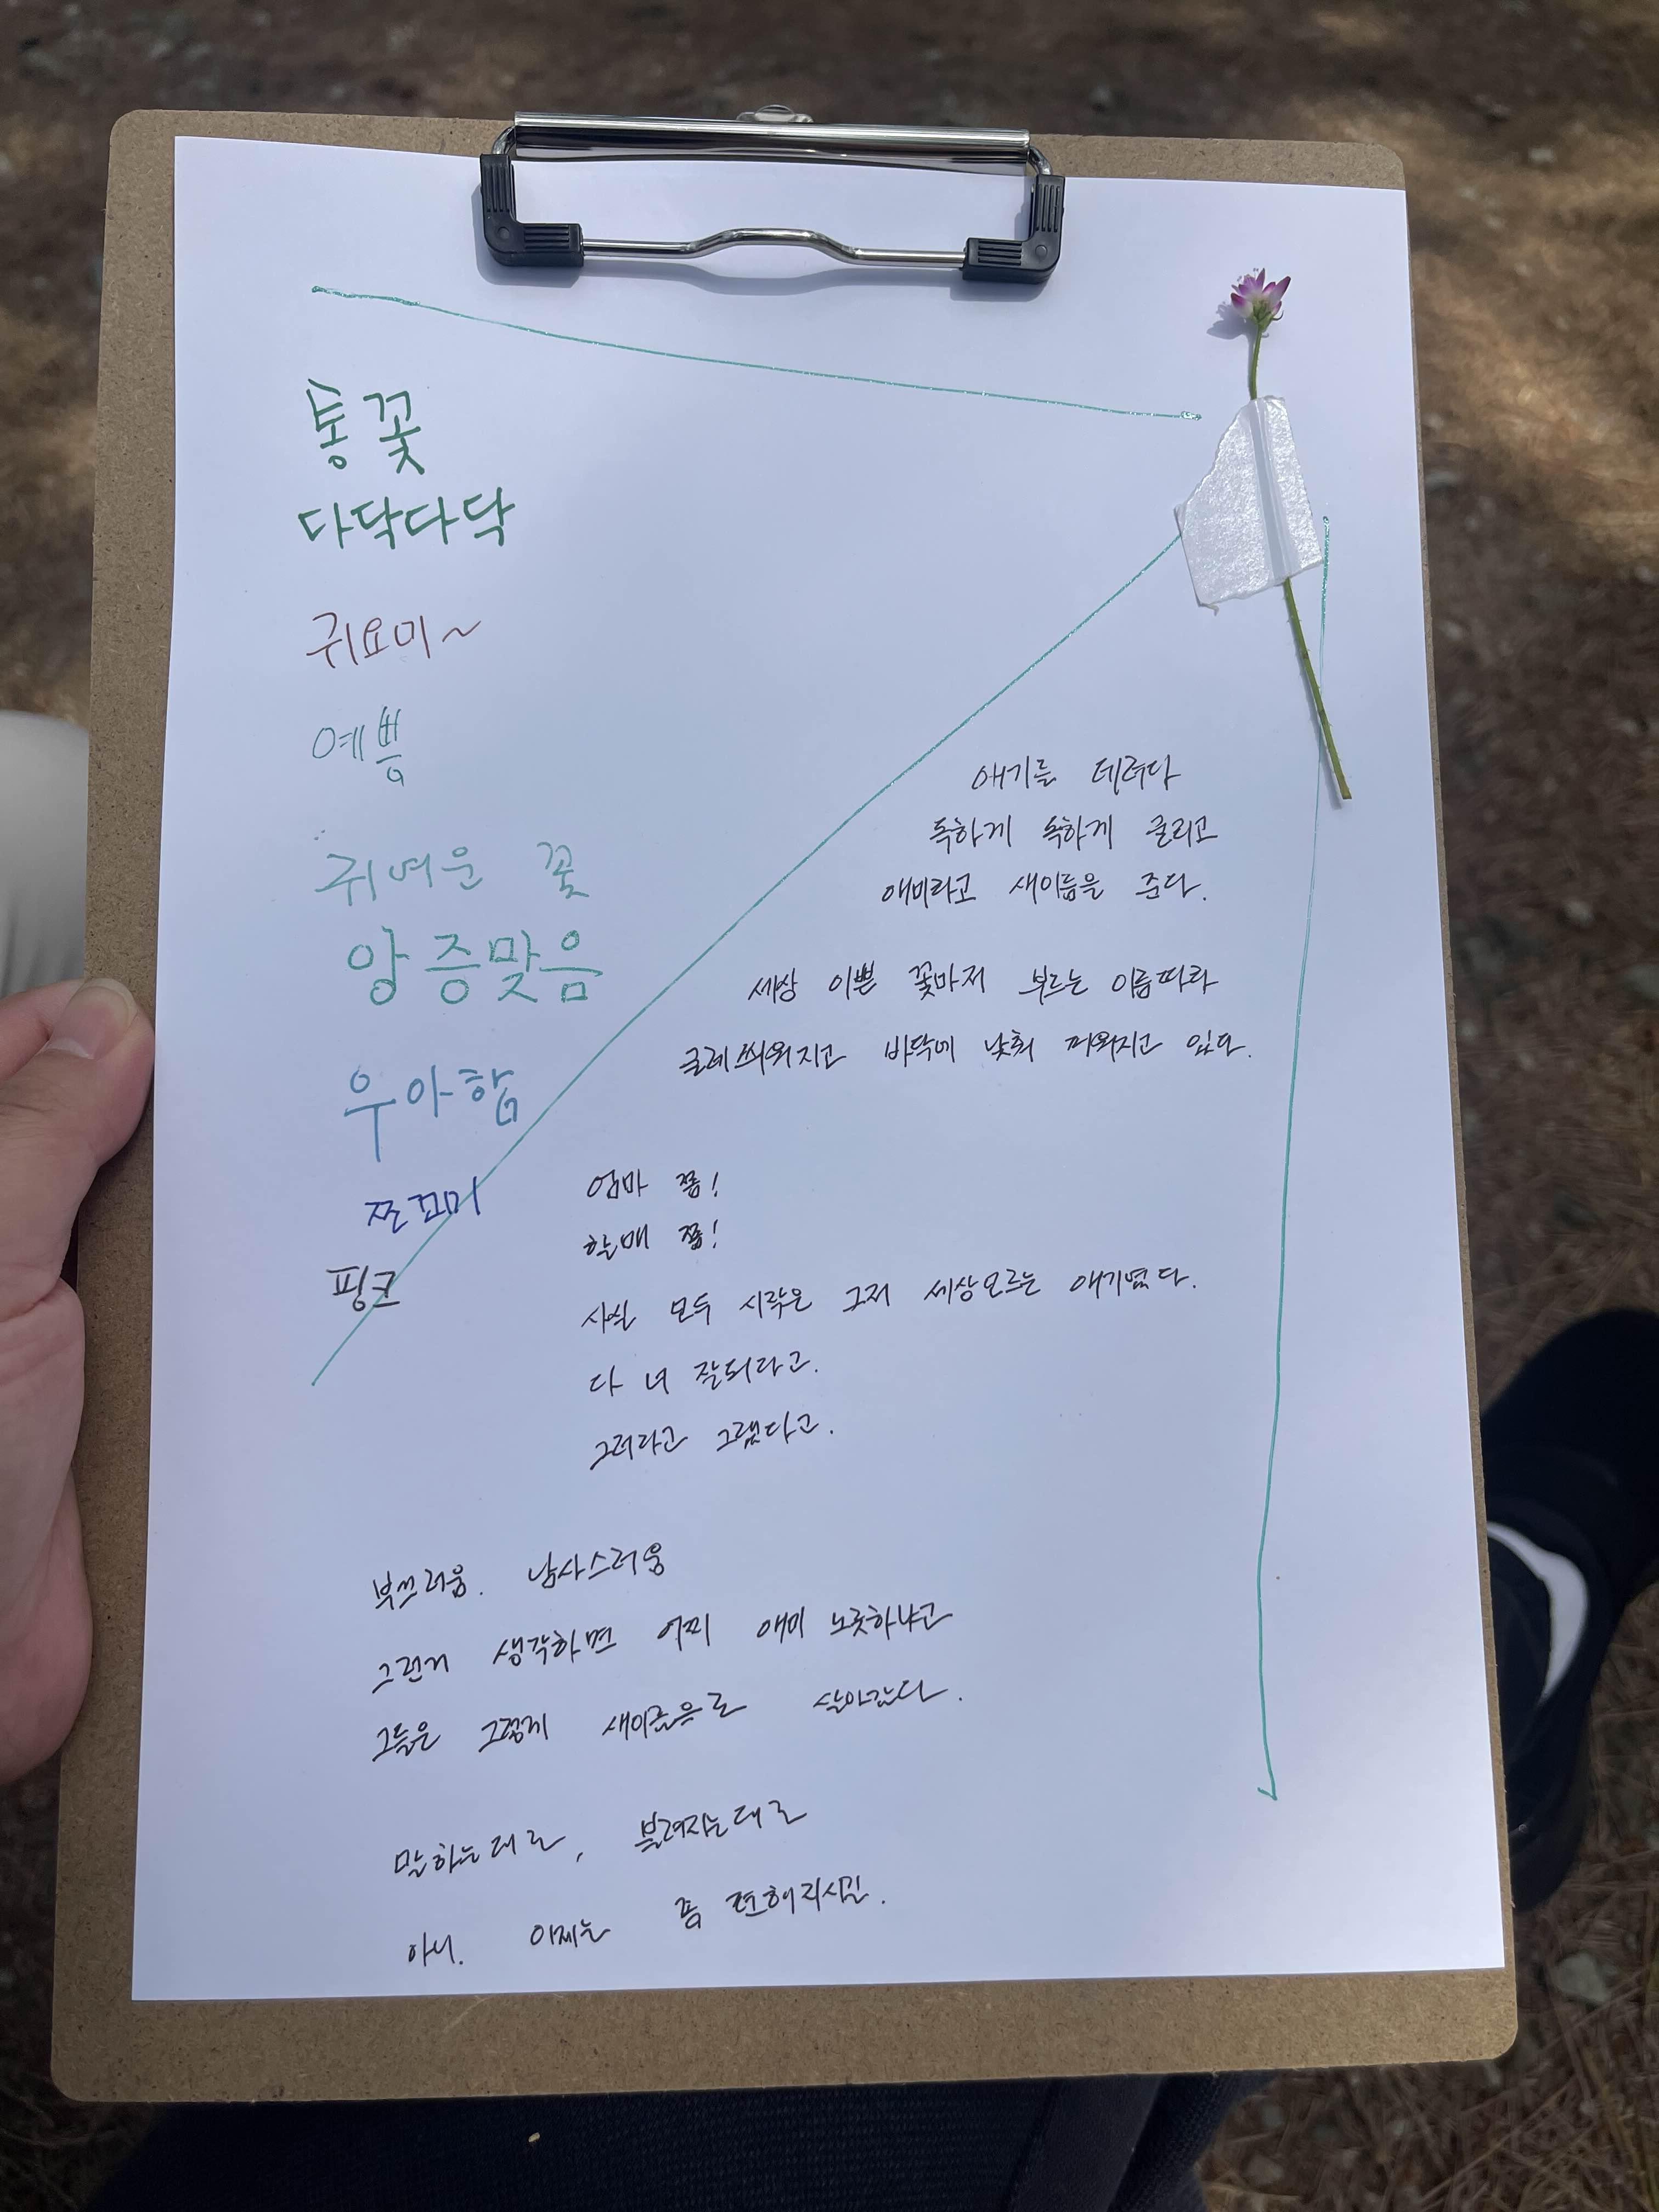 통꽃
다닥다닥
귀요미~
예쁨
귀여운 꽃
앙증맞음
우아함
쪼꼬미
핑크
애기를 데려다
독하게 독하게 굴리고
애미라고 새이름을 준다.
세상 이쁜 꽃마저 부르는 이름따라
굴레 씌워지고 바닥에 낮춰 피워지고 있다.
엄마 쫌!
할매 쫌!
사실 모두 시작은 그저 세상모르는 애기였다.
다 너 잘되라고.
그러라고 그랬다고.
부끄러움. 남사스러움
그런거 생각하면 어찌 애미 노릇하냐고
그들은 그렇게 새이름으로 살아갔다.
말하는대로, 불려지는대로
아니. 이제는 좀 편해지시길.